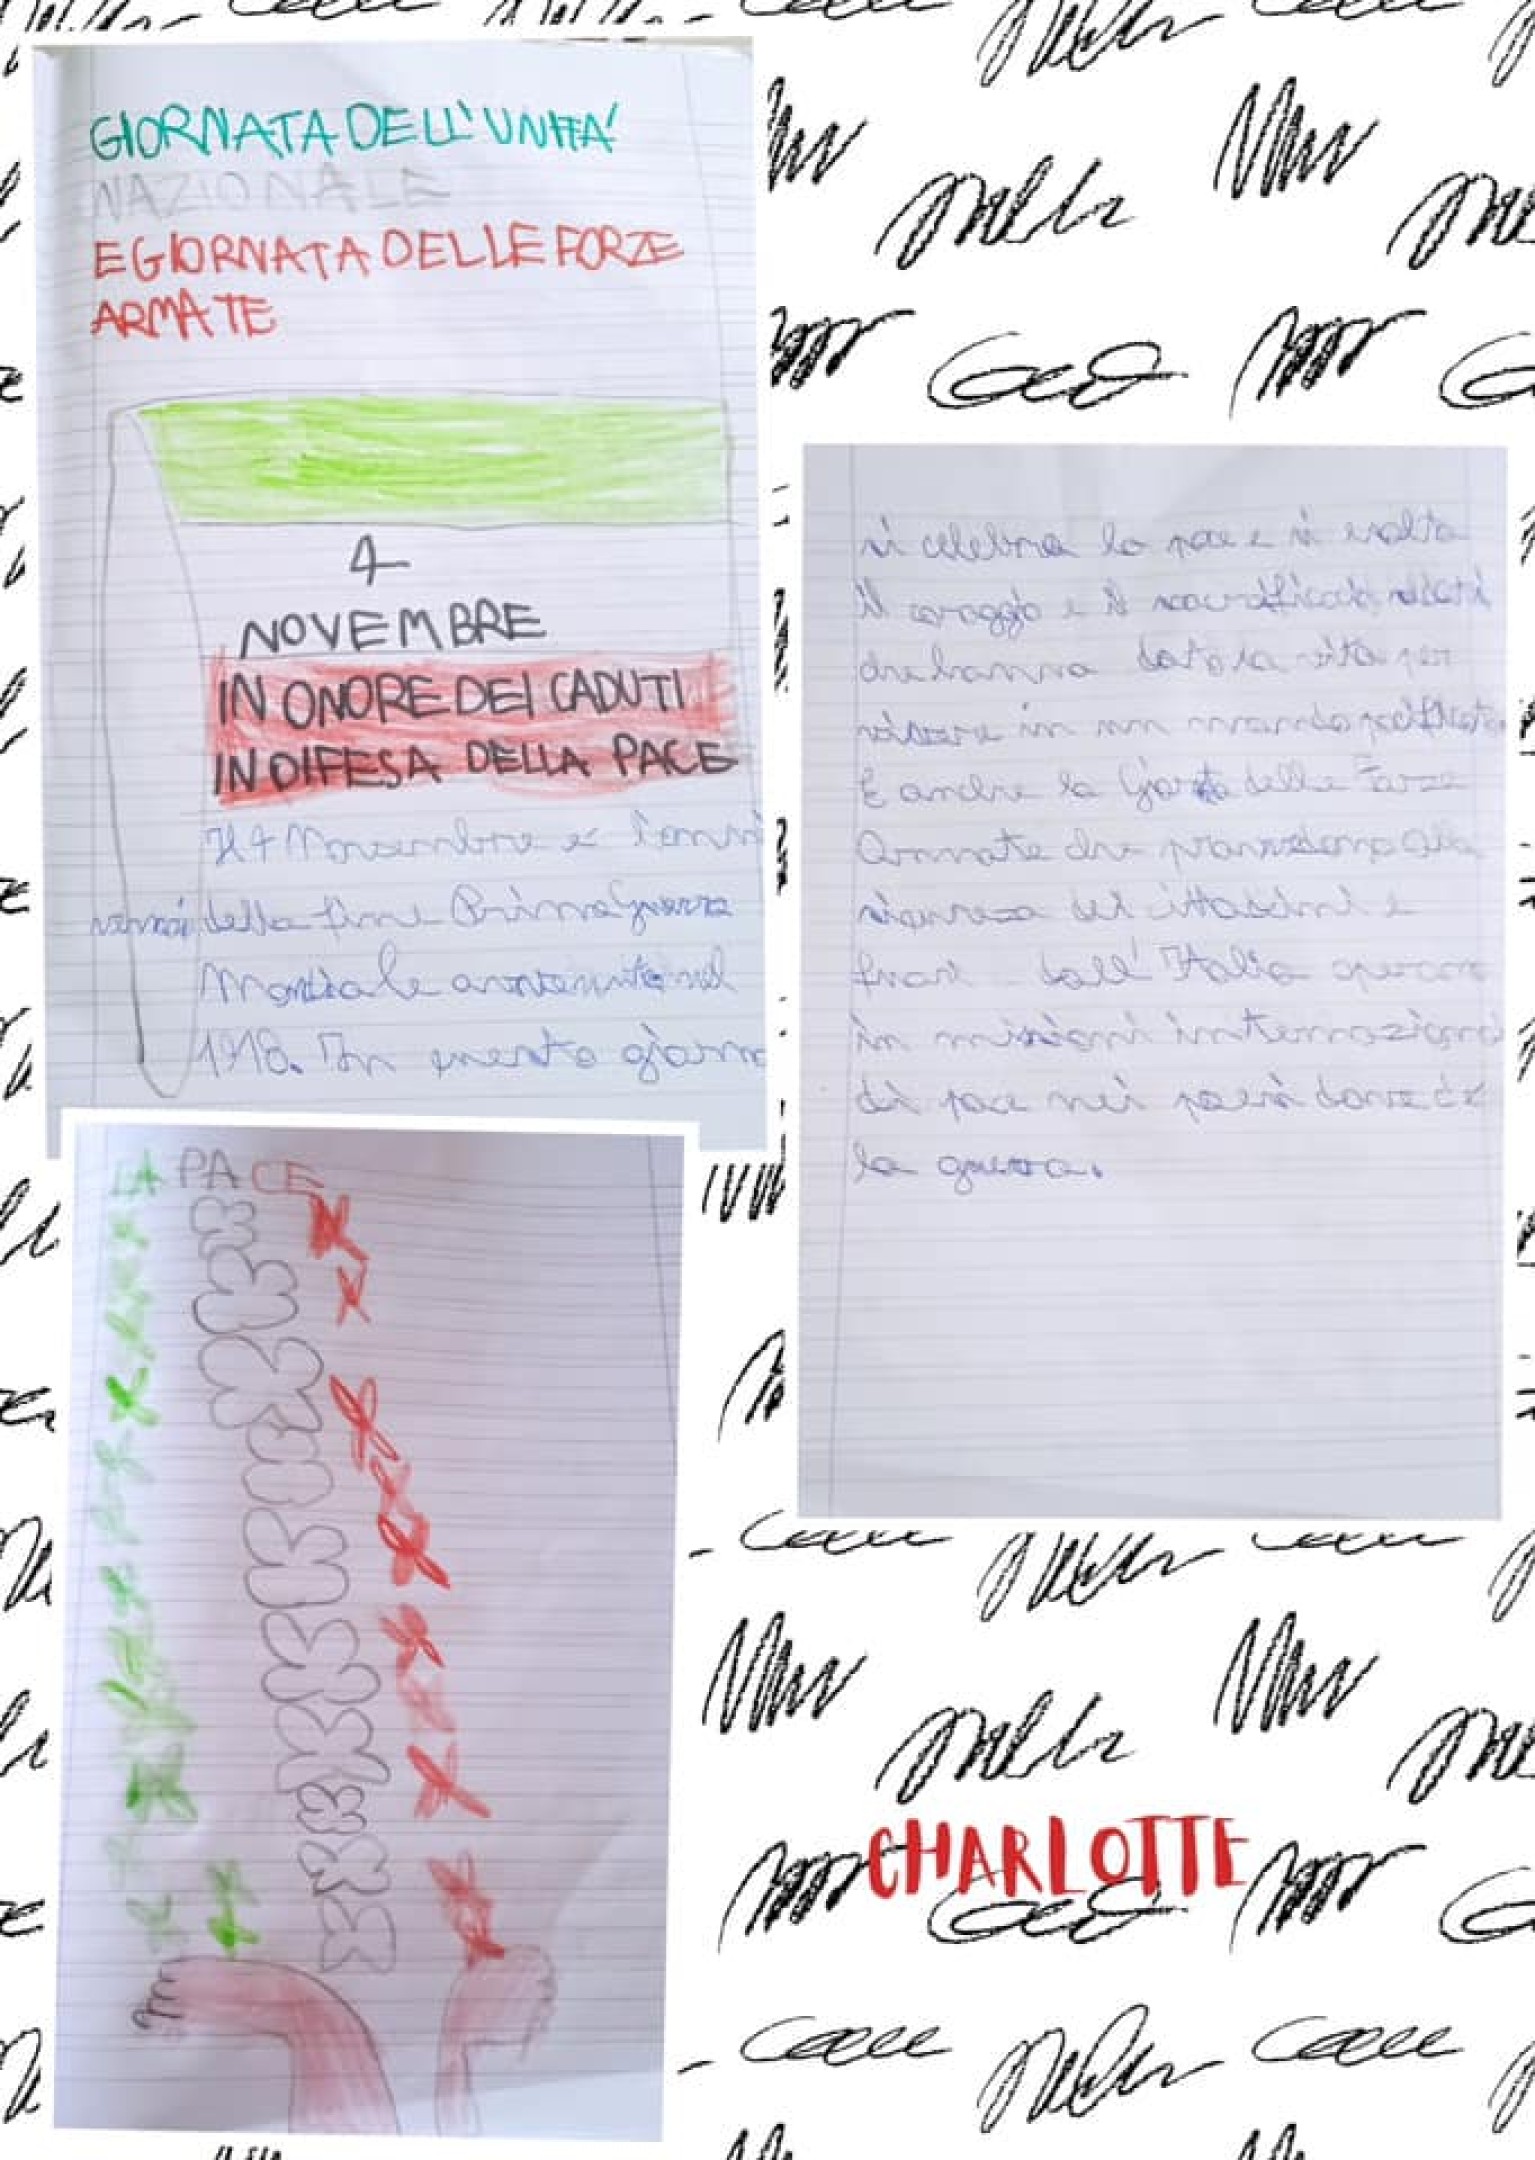 GIORNATA DELL'UNITA'
NAZIONALE
E GIORNATA DELLE FORZE
ARMATE
4
NOVEMBRE
IN ONORE DEI CADUTI
IN DIFESA DELLA PACE
Il 4 Novembre è l'anni
versari della fine Prima Guerra
Mondiale avvenuta nel
1918. In questo giorno
si celebra la pace e si esalta
il coraggio e il sacrificio di
che hanno dato la vita per
vivere in un mondo
È anche la festa delle Forze
Armate che provvedono alla
sicurezza dei cittadini e
fuori dall'Italia operano
in missioni internazionali
di pace nei paesi dove c'è
la guerra.
LA PACE
CHARLOTTE